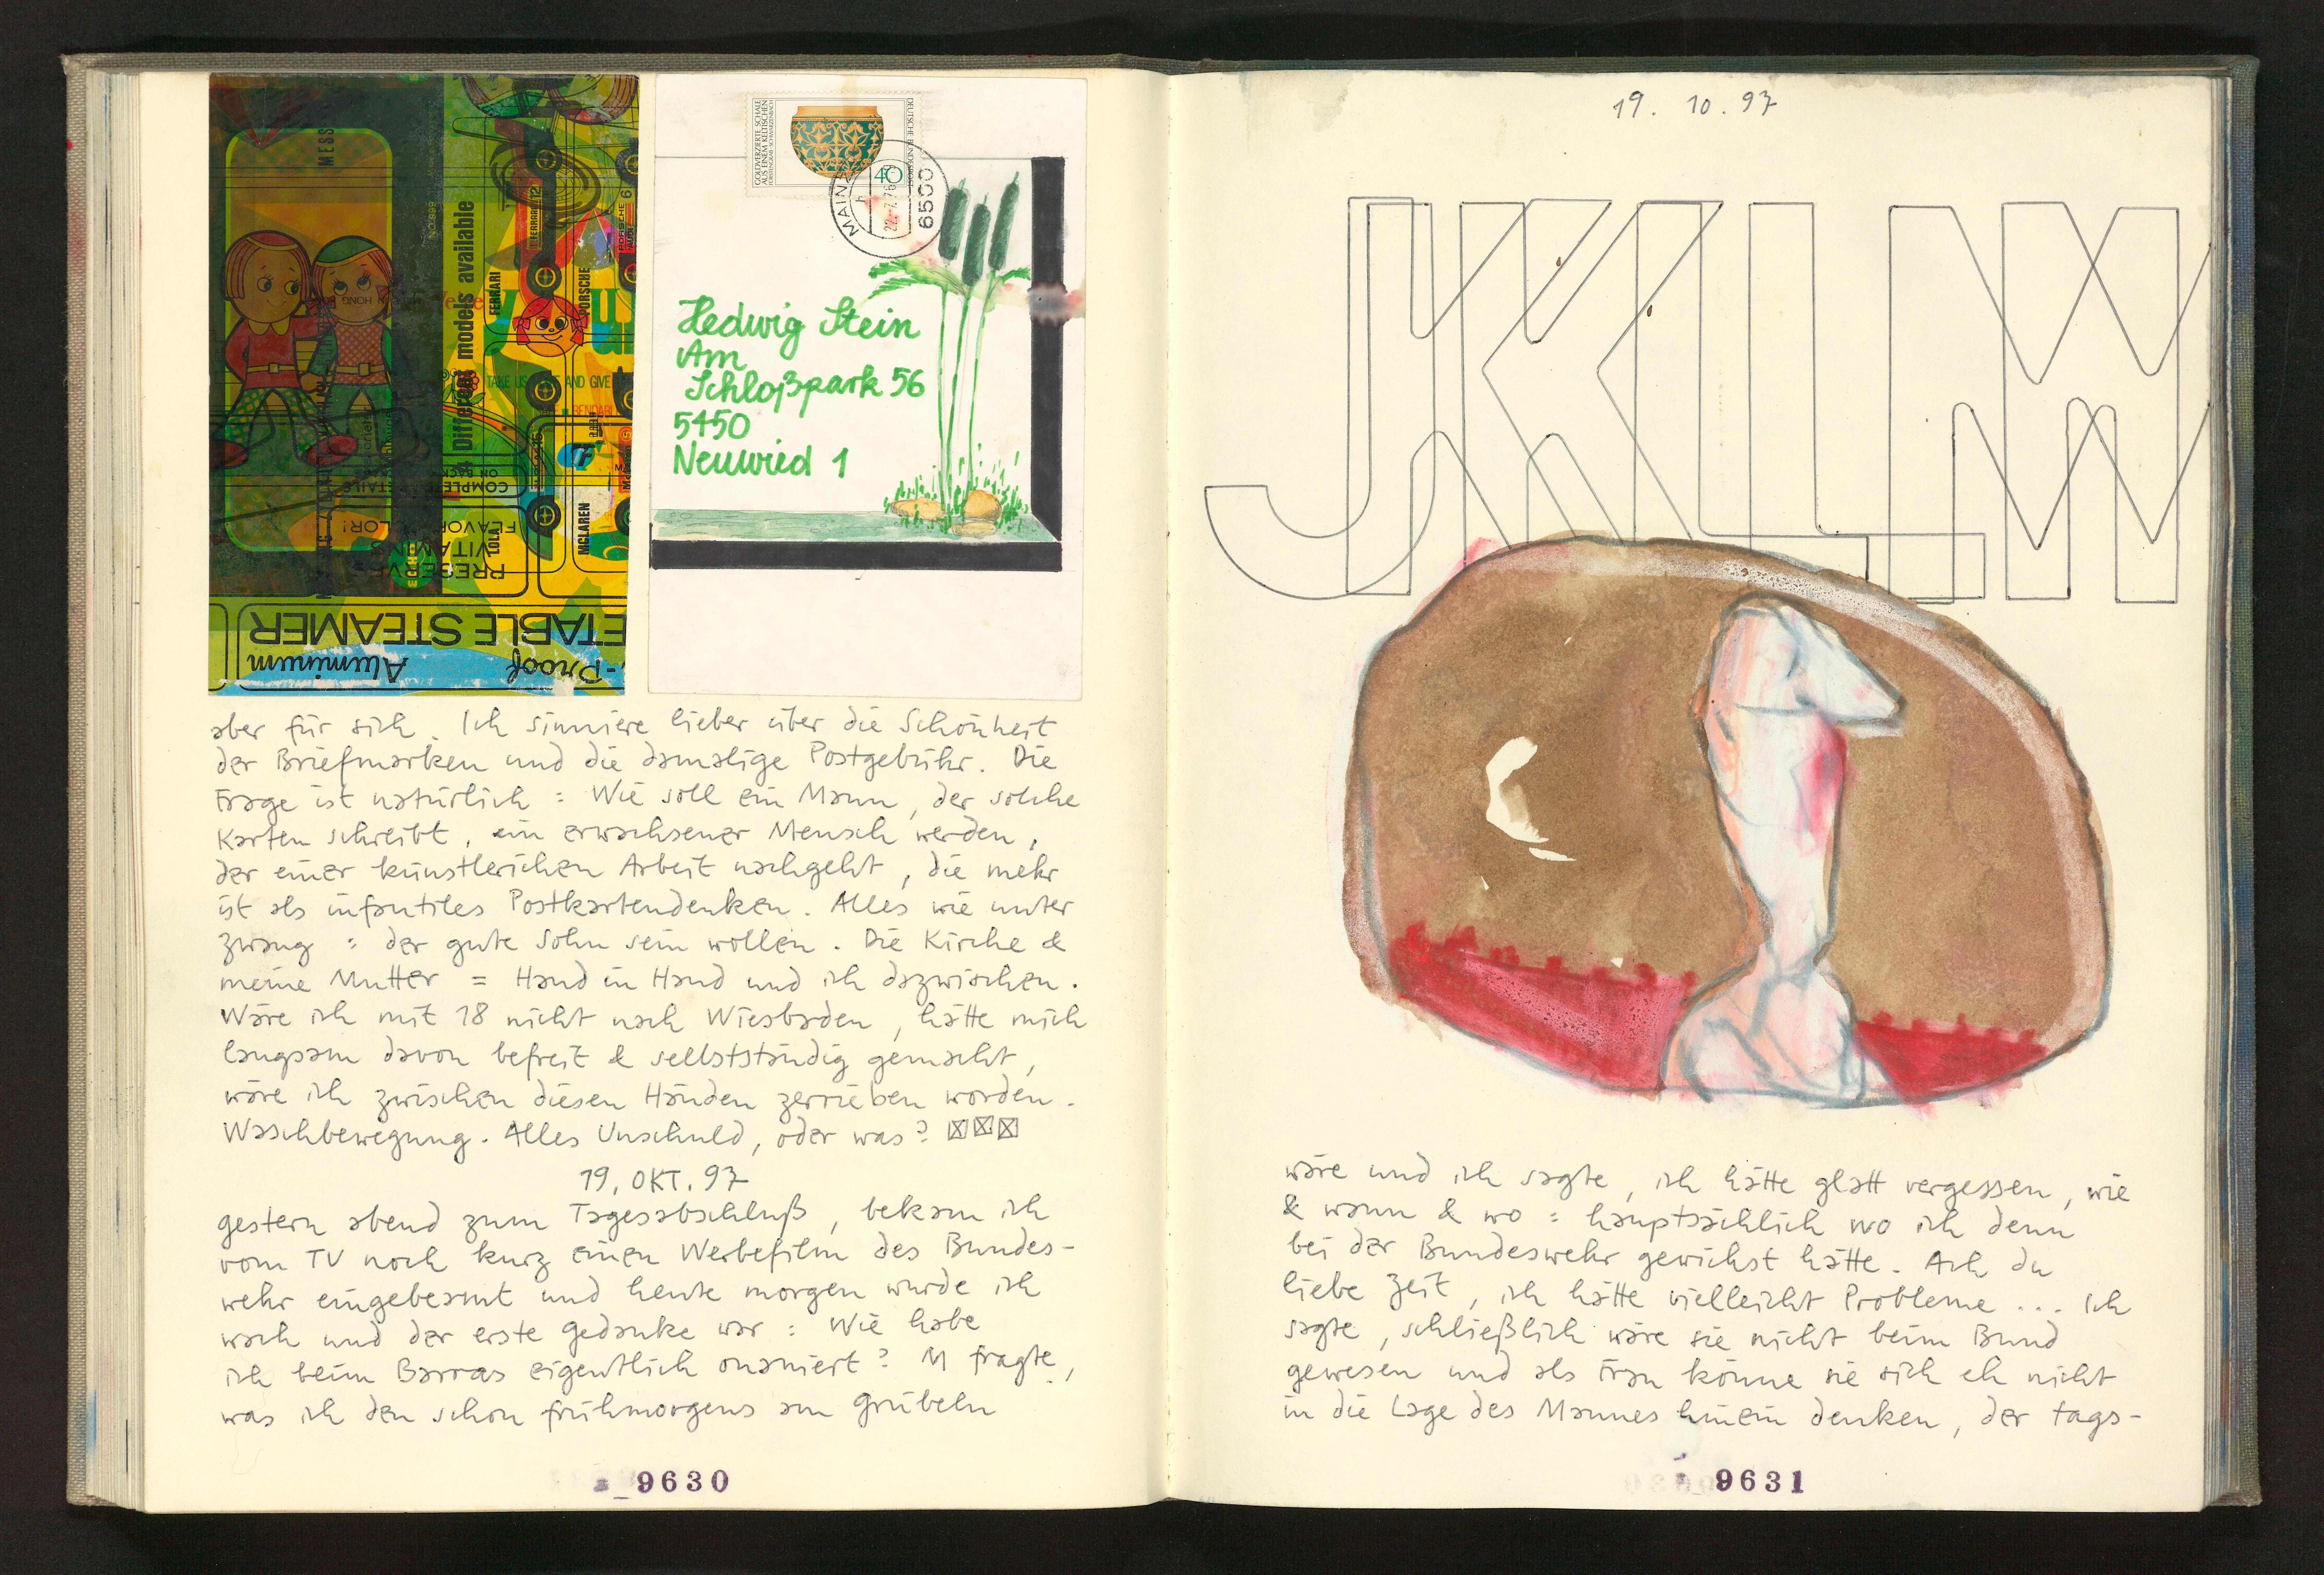 MESS
NO. 899
4 Different models available
FERRARI
FERRARI 12
PORSCHE
PORSCHE 6
TAKE US AND GIVE
BENDABL
MCLAREN
LOLA
COMPLETE DETAILS
ON BACK
FLAVOR COLOR!
VITAMINS
PRESERVE
ETABLE STEAMER
-Proof Aluminum
GOLDVERZIERTE SCHALE
AUS EINEM KELTISCHEN
FÜRSTENGRAB · SCHWARZENBACH
DEUTSCHE BUNDESPOST
40
MAINZ
22.-7.76
6500
Hedwig Stein
Am
Schloßpark 56
5450
Neuwied 1
aber für sich. Ich sinniere lieber über die Schönheit
der Briefmarken und die damalige Postgebühr. Die
Frage ist natürlich: Wie soll ein Mann, der solche
Karten schreibt, ein erwachsener Mensch werden,
der einer künstlerichen Arbeit nachgeht, die mehr
ist als infantiles Postkartendenken. Alles wie unter
Zwang: der gute Sohn sein wollen. Die Kirche &
meine Mutter = Hand in Hand und ich dazwischen.
Wäre ich mit 18 nicht nach Wiesbaden, hätte mich
langsam davon befreit & selbstständig gemacht,
wäre ich zwischen diesen Händen zerrieben worden.
Waschbewegung. Alles Unschuld, oder was? ☒☒☒
19. OKT. 97
gestern abend zum Tagesabschluß, bekam ich
vom TV noch kurz einen Werbefilm des Bundes-
wehr eingebeamt und heute morgen wurde ich
wach und der erste Gedanke war: Wie habe
ich beim Barras eigentlich onaniert? M fragte,
was ich den schon frühmorgens am Grübeln
9630
19. 10. 97
JKLM
wäre und ich sagte, ich hätte glatt vergessen, wie
& wann & wo: hauptsächlich wo ich denn
bei der Bundeswehr gewichst hätte. Ach du
liebe Zeit, ich hätte vielleicht Probleme... Ich
sagte, schließlich wäre sie nicht beim Bund
gewesen und als Frau könne sie sich eh nicht
in die Lage des Mannes hinein denken, der tags-
9631